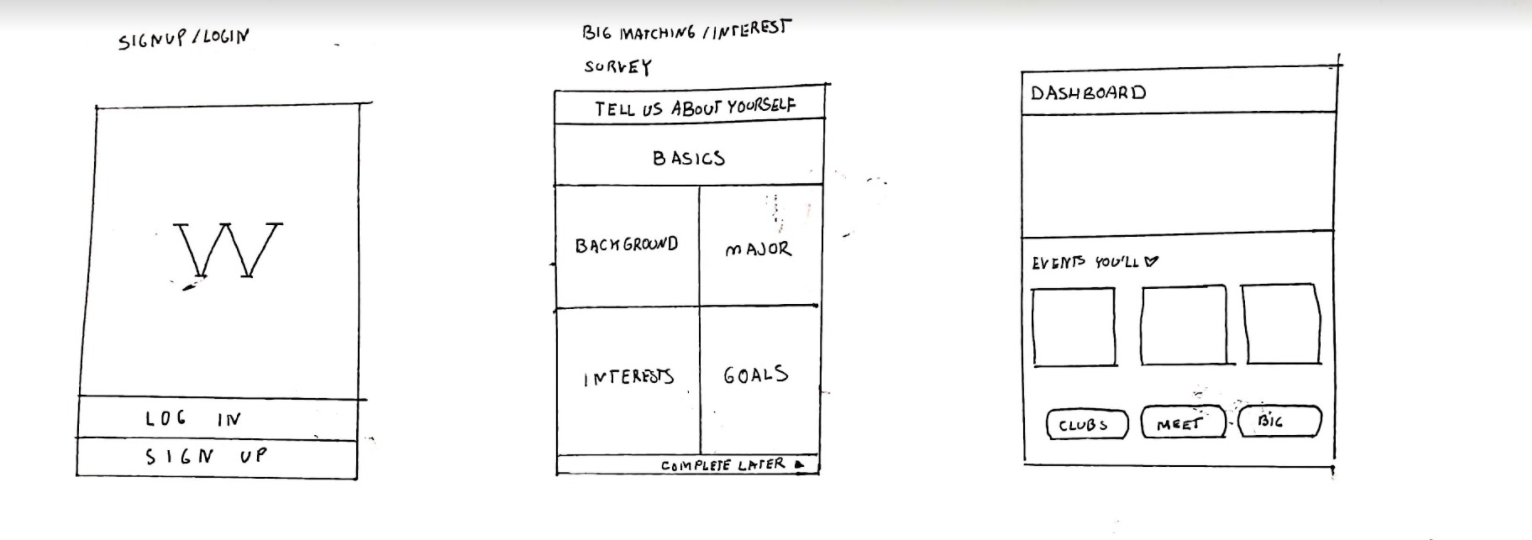 SIGNUP/LOGIN
W
LOG IN
SIGN UP
BIG MATCHING/INTEREST
SURVEY
TELL US ABOUT YOURSELF
BASICS
BACKGROUND
MAJOR
INTERESTS
GOALS
COMPLETE LATER
DASHBOARD
EVENTS YOU'LL ♡
CLUBS
MEET
BIG